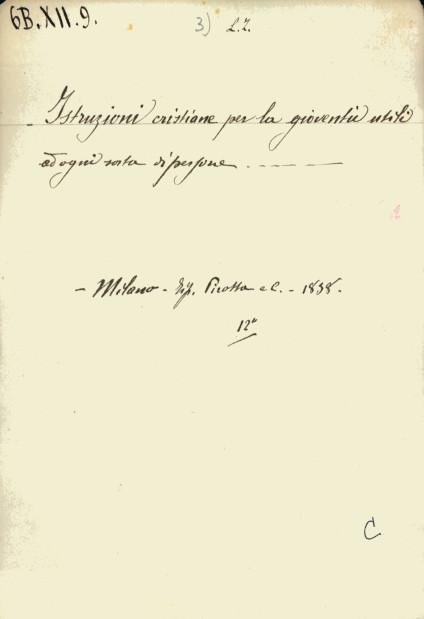 6B.XII.9.
3) L.I.
Istruzioni cristiane per la gioventù utili
ad ogni sorta di persone
- Milano - Tip. Pirotta e C. - 1838.
12°
C